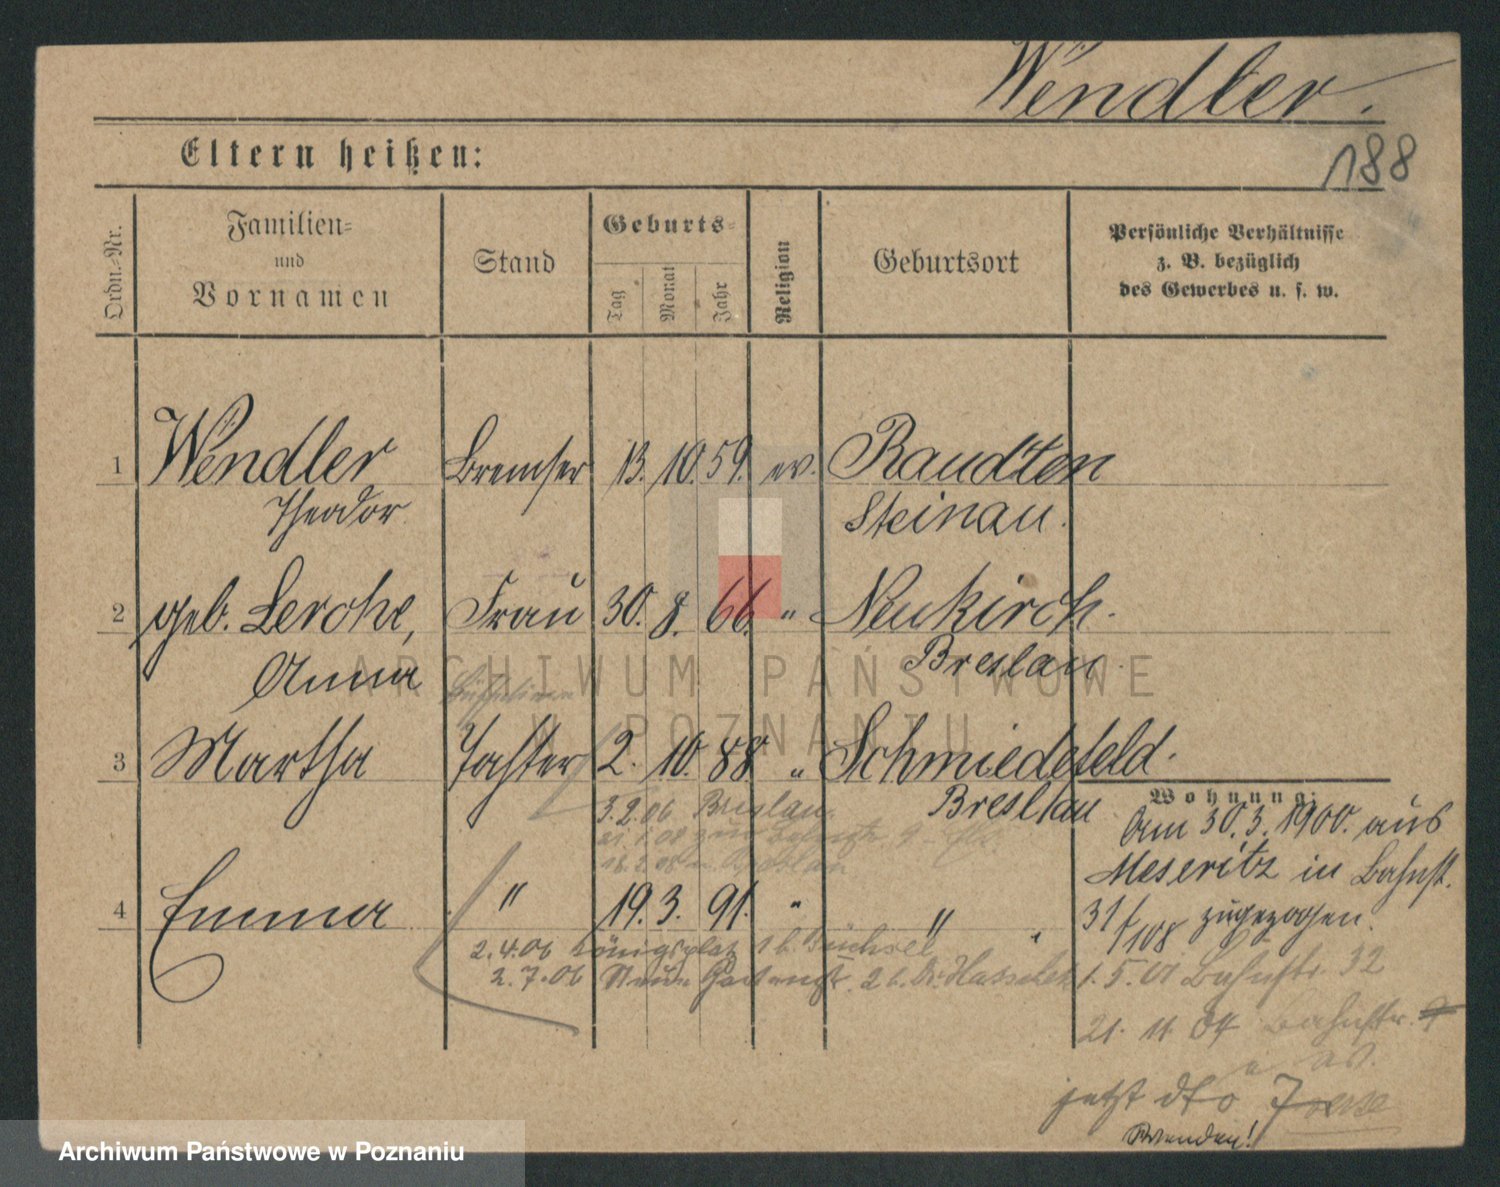 Wendler.
188
Eltern heißen:
Ordn.-Nr.
Familien-
und
Vornamen
Stand
Geburts-
Tag
Monat
Jahr
Religion
Geburtsort
Persönliche Verhältnisse
z. B. bezüglich
des Gewerbes u. s. w.
1 Wendler Bremser 13. 10. 59. ev. Raudten
Theodor Steinau.
2 geb. Lerche, Frau 30. 8. 66. " Neukirch.
Anna Breslau.
3 Martha Tochter 2. 10. 88. " Schmiedefeld.
Breslau
3.2.06 Breslau
Wohnung:
Am 30.3.1900. aus
Meseritz in Bahnst.
4 Emma " 19. 3. 91. " "
31/108 zugezogen.
2.4.06 Königsplatz Büchsel
2.7.06 Neue Gartenstr. 2
1.5.01 Bahnstr. 32
21. 11 04 Bahnstr. 9
jetzt dto
Wenden!
ARCHIWUM PAŃSTWOWE
W POZNANIU
Archiwum Państwowe w Poznaniu